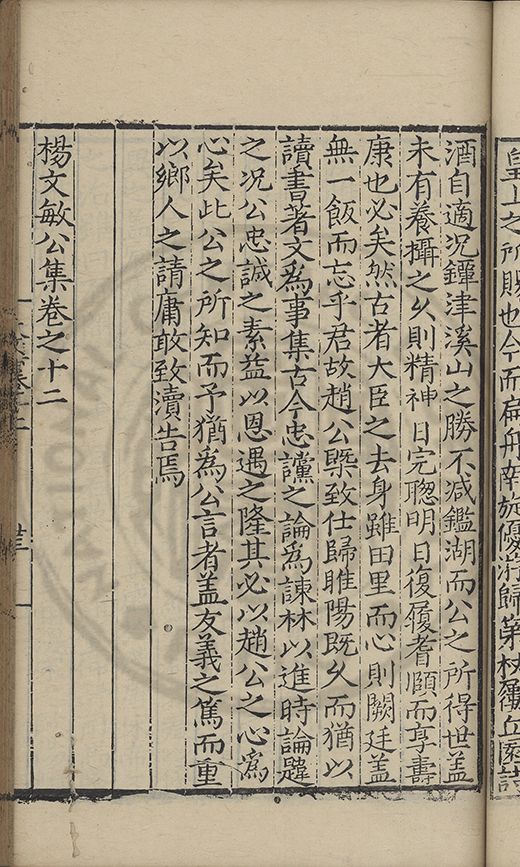 皇上之所賜也今而扁舟南旋優游歸第杖屨丘園詩
酒自適况鐔津溪山之勝不減鑑湖而公之所得世盖
未有養攝之久則精神日完聦明日復履耆頤而享壽
康也必矣然古者大臣之去身雖田里而心則闕廷盖
無一飯而忘乎君故趙公槩致仕歸睢陽既久而猶以
讀書著文為事集古今忠讜之論為諫林以進時論韙
之况公忠誠之素益以恩遇之隆其必以趙公之心為
心矣此公之所知而予猶為公言者盖友義之篤而重
以鄉人之請庸敢致瀆告焉
楊文敏公集卷之十二